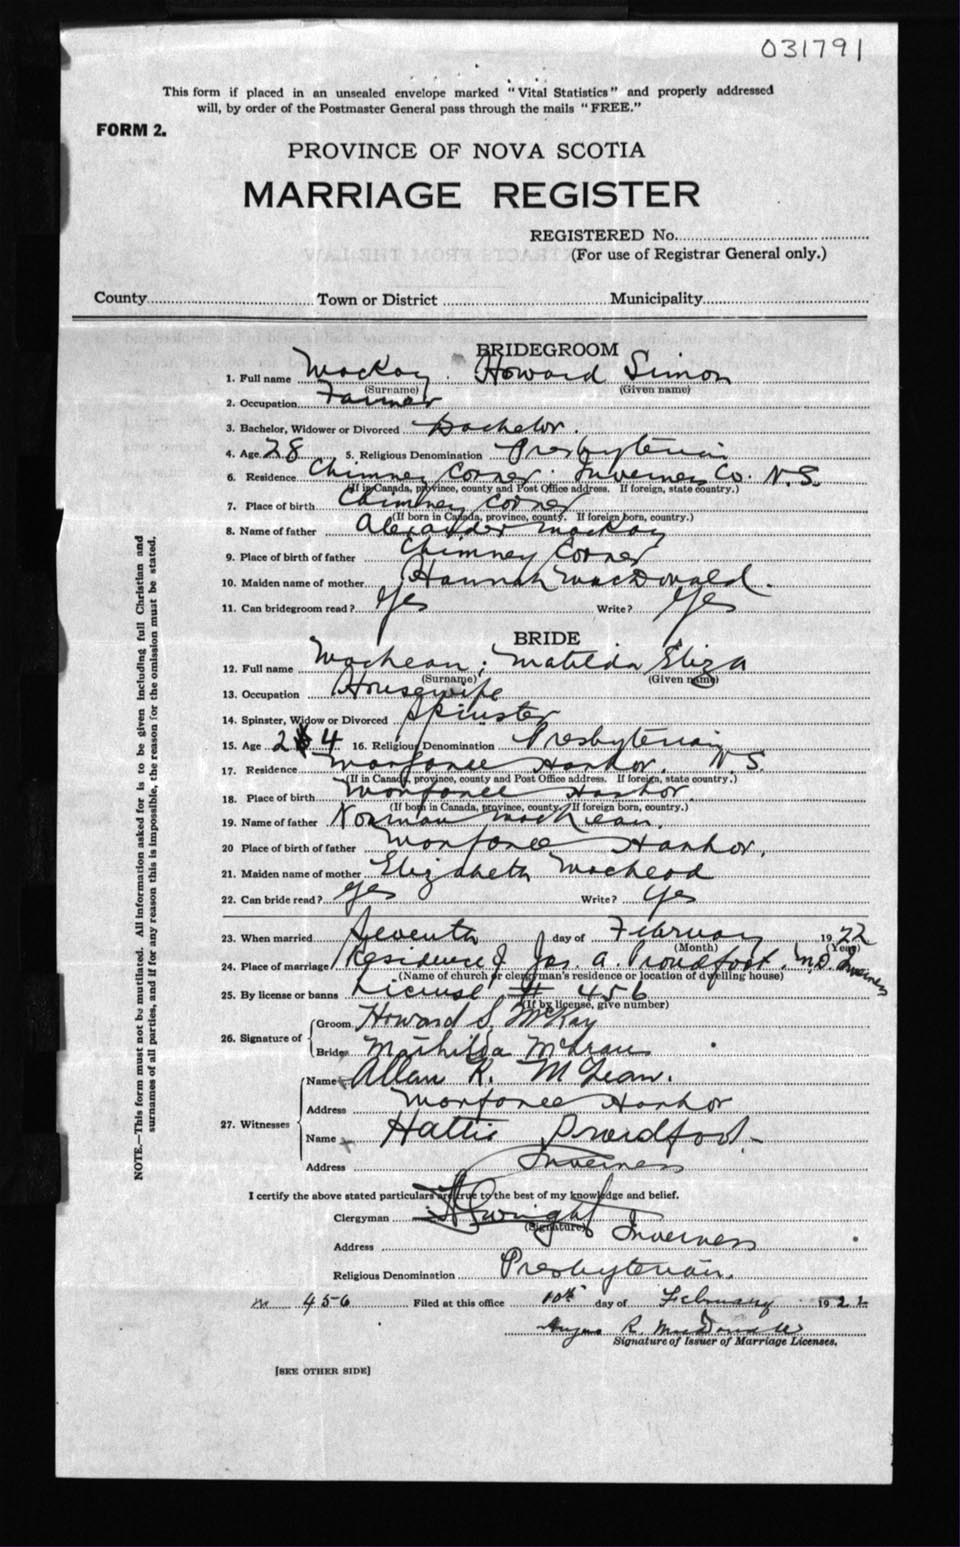 031791
This form if placed in an unsealed envelope marked "Vital Statistics" and properly addressed
will, by order of the Postmaster General pass through the mails "FREE."
FORM 2.
PROVINCE OF NOVA SCOTIA
MARRIAGE REGISTER
REGISTERED No.
(For use of Registrar General only.)
County Town or District Municipality
BRIDEGROOM
1. Full name MacKay Howard Simon
(Surname) (Given name)
2. Occupation Farmer
3. Bachelor, Widower or Divorced Bachelor.
4. Age 28 5. Religious Denomination Presbyterian
6. Residence Chimney Corner. Inverness Co. N.S.
(If in Canada, province, county and Post Office address. If foreign, state country.)
7. Place of birth Chimney Corner
(If born in Canada, province, county. If foreign born, country.)
8. Name of father Alexander MacKay
9. Place of birth of father Chimney Corner
10. Maiden name of mother Hannah MacDonald.
11. Can bridegroom read? Yes Write? Yes
BRIDE
12. Full name MacLean, Matilda Eliza
(Surname) (Given name)
13. Occupation Housewife
14. Spinster, Widow or Divorced Spinster
15. Age 24 16. Religious Denomination Presbyterian
17. Residence Harbor, N.S.
(If in Canada, province, county and Post Office address. If foreign, state country.)
18. Place of birth Harbor.
(If born in Canada, province, county. If foreign born, country.)
19. Name of father Norman MacLean.
20 Place of birth of father Harbor.
21. Maiden name of mother Elizabeth MacLeod
22. Can bride read? yes Write? yes
23. When married Seventh day of February 1922
(Month) (Year)
24. Place of marriage Residence of Jas. A. Proudfoot. M.D. Inverness
(Name of church or clergyman's residence or location of dwelling house)
25. By license or banns License # 456
(If by license, give number)
26. Signature of Groom Howard S. McKay
Bride Mathilda McLean
27. Witnesses Name Allan R. McLean.
Address Harbor
Name Hattie Proudfoot
Address Inverness
I certify the above stated particulars are true to the best of my knowledge and belief.
Clergyman
(Signature)
Address Inverness
Religious Denomination Presbyterian.
456 Filed at this office 10th day of February 1922
Angus R. MacDonald
Signature of Issuer of Marriage Licenses.
[SEE OTHER SIDE]
NOTE.—This form must not be mutilated. All information asked for is to be given including full Christian and
surnames of all parties, and if for any reason this is impossible, the reason for the omission must be stated.